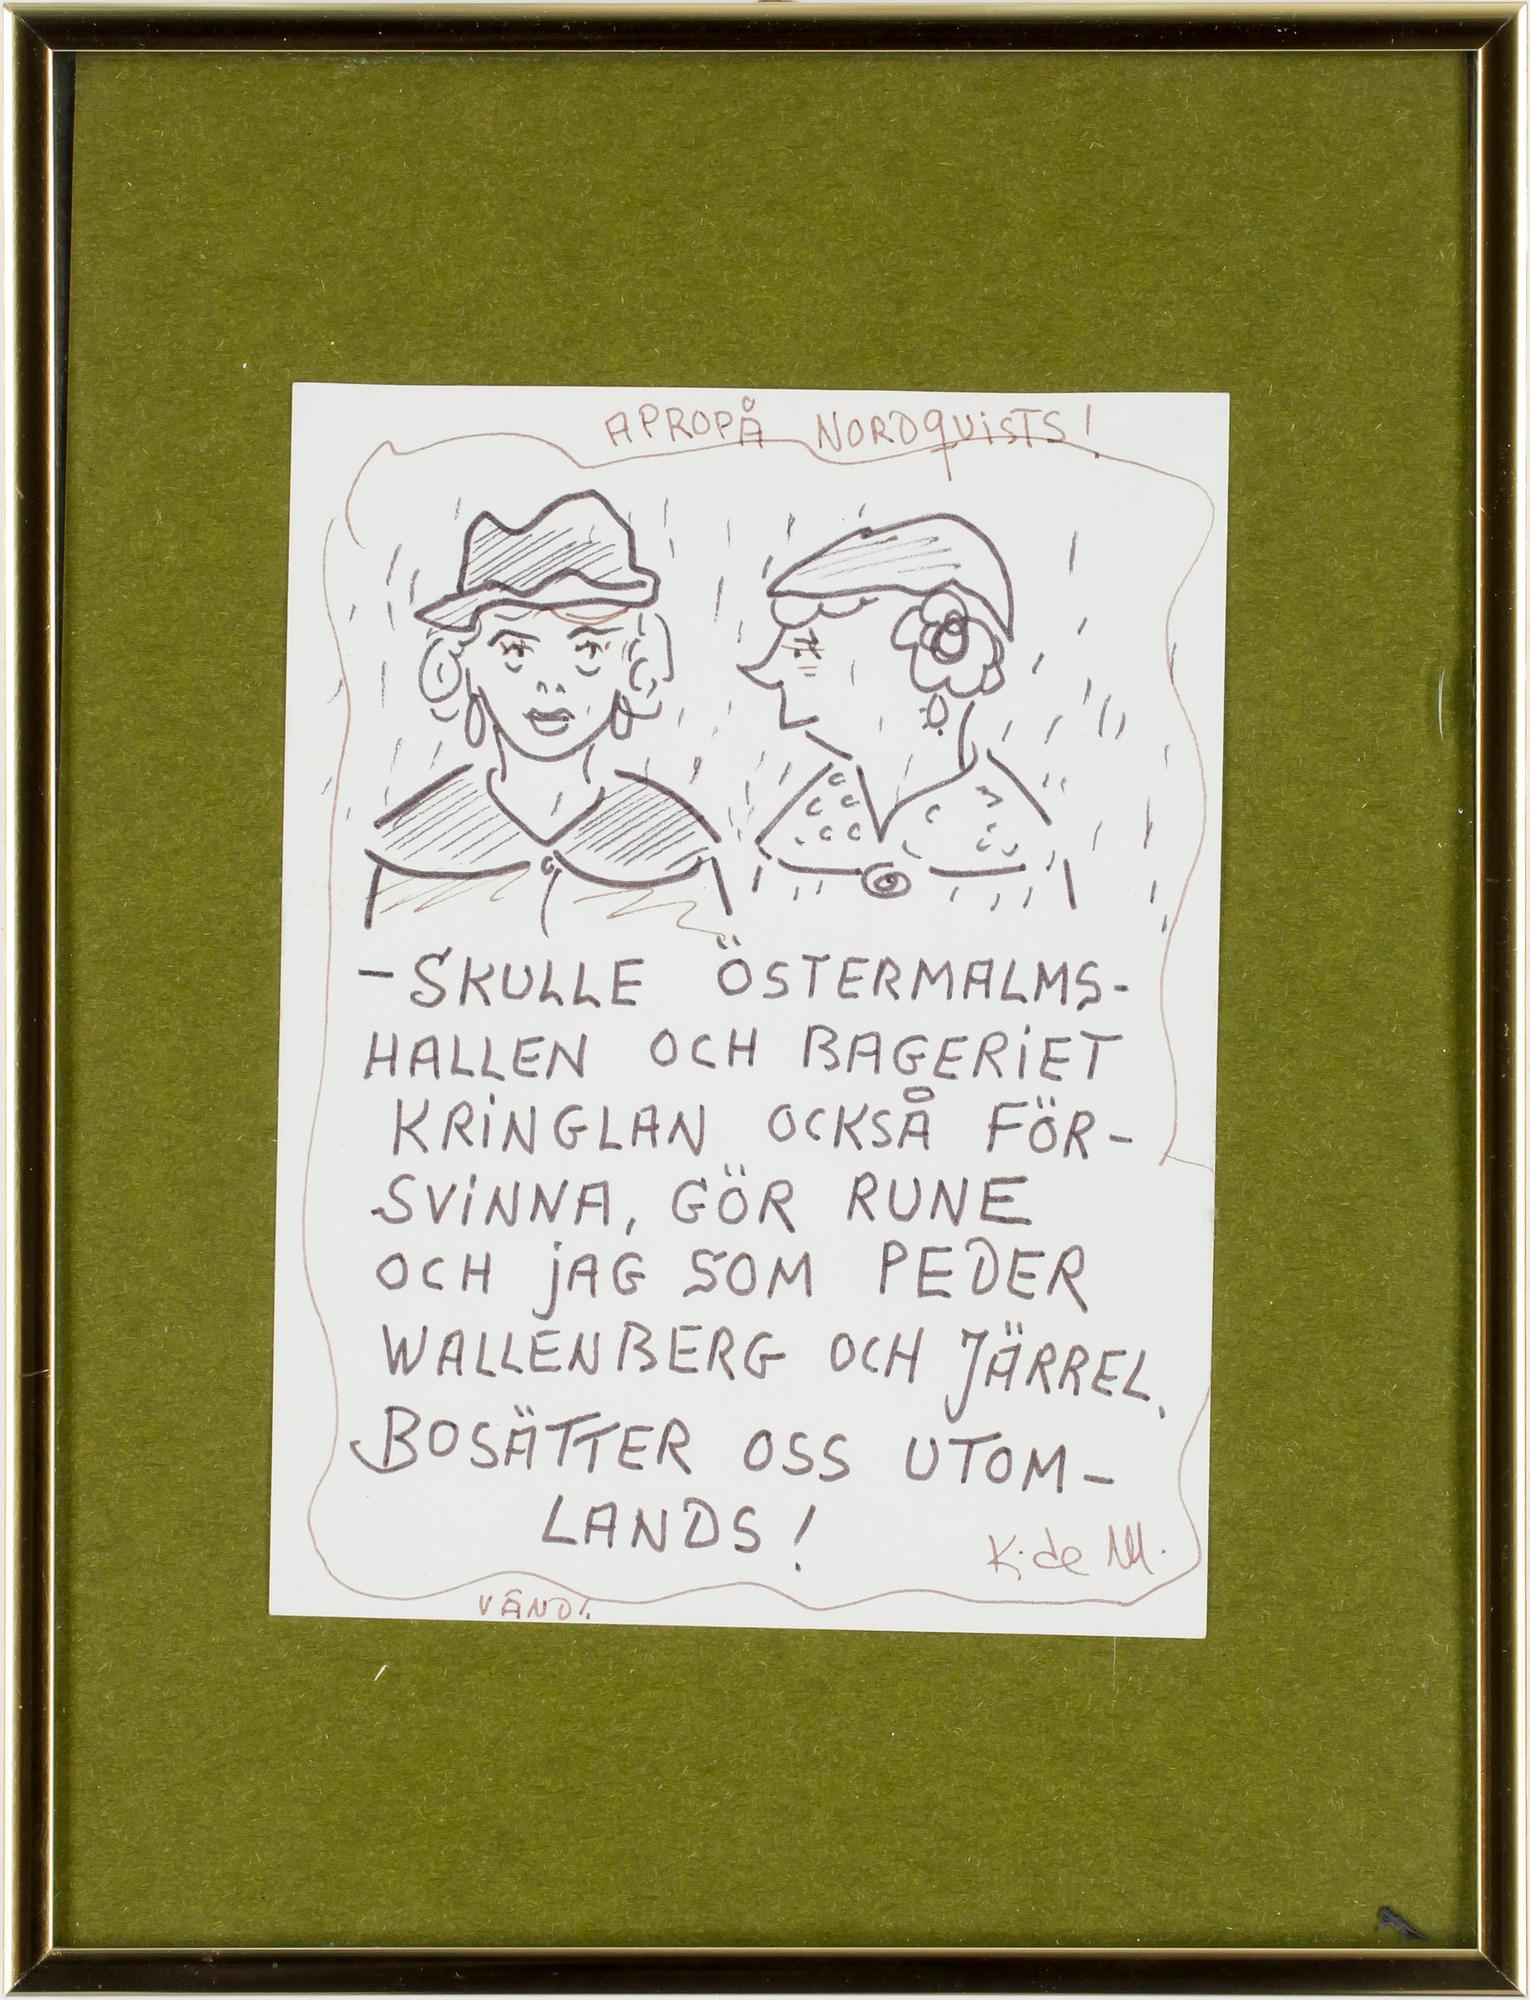 APROPÅ NORDQUISTS!
– SKULLE ÖSTERMALMS-
HALLEN OCH BAGERIET
KRINGLAN OCKSÅ FÖR-
SVINNA, GÖR RUNE
OCH JAG SOM PEDER
WALLENBERG OCH JÄRREL,
BOSÄTTER OSS UTOM-
LANDS!
K. de M.
VÄND!